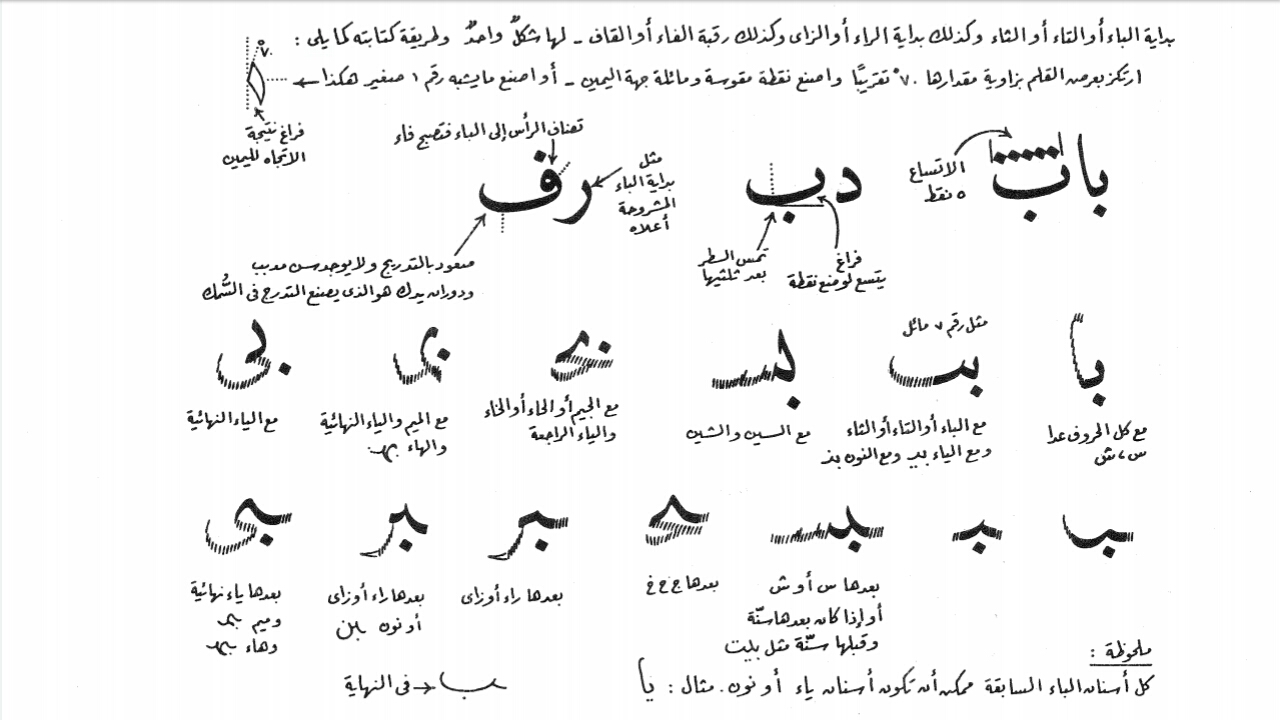 بداية الباء أو التاء أو الثاء وكذلك بداية الراء أو الزاى وكذلك رقبة الفاء أو القاف - لها شكلٌ واحدٌ وطريقة كتابته كما يلى :
ارتكز بعرض القلم بزاوية مقدارها ٧٠° تقريبًا واصنع نقطة مقوسة ومائلة جهة اليمين - أو اصنع ما يشبه رقم ١ صغير هكذا
٧٠°
فراغ نتيجة
الاتجاه لليمين
باب
الاتساع
٥ نقط
دب
فراغ
يتسع لوضع نقطة
تمس السطر
بعد ثلثيها
رف
تضاف الرأس إلى الباء فتصبح فاء
مثل
بداية الباء
المشروحة
أعلاه
صعود بالتدريج ولا يوجد سن مدبب
ودوران يدك هو الذى يصنع التدرج فى السُّمك
با
مع كل الحروف عدا
س ، ش
مثل رقم ٧ مائل
بب
مع الباء أو التاء أو الثاء
ومع الياء بيـ ومع النون بنـ
بسـ
مع السين والشين
بح
مع الجيم أو الحاء أو الخاء
والياء الراجعة
بمـ
مع الميم والياء النهائية
والهاء بهـ
بى
مع الياء النهائية
ـب
ـبـ
ـبسـ
بعدها س أو ش
أو إذا كان بعدها سنّة
وقبلها سنّة مثل بليت
ـبح
بعدها ج ح خ
ـبر
بعدها راء أو زاى
ـبر
بعدها راء أو زاى
أو نون ـبن
ـبى
بعدها ياء نهائية
وميم ـبمـ
وهاء ـبهـ
ملحوظة :
كل أسنان الباء السابقة ممكن أن تكون أسنان ياء أو نون. مثال : يا
ـب فى النهاية